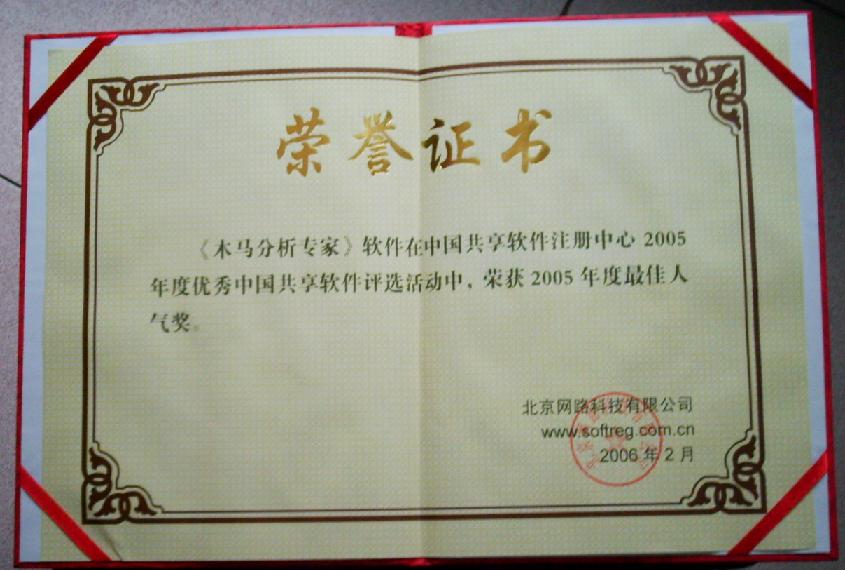 荣誉证书
《木马分析专家》软件在中国共享软件注册中心 2005
年度优秀中国共享软件评选活动中，荣获 2005 年度最佳人
气奖。
北京网路科技有限公司
www.softreg.com.cn
2006 年 2 月